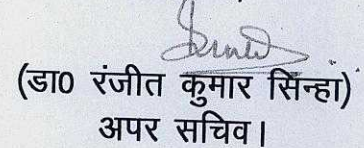 (डा0 रंजीत कुमार सिन्हा)
अपर सचिव।